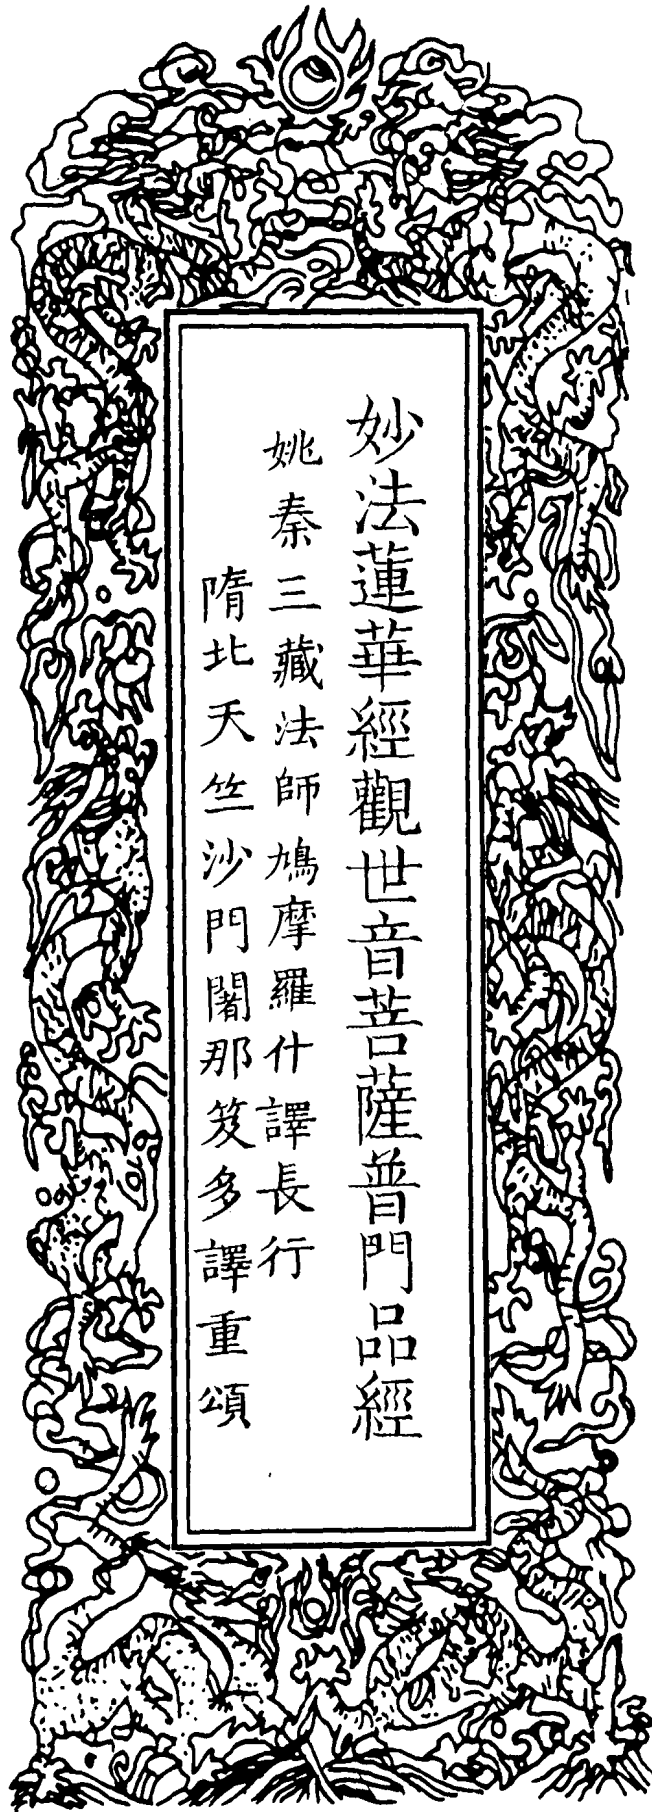 妙法蓮華經觀世音菩薩普門品經
姚秦三藏法師鳩摩羅什譯長行
隋北天竺沙門闍那笈多譯重頌